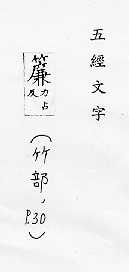 五經文字
簾力占反
(竹部,P.30)